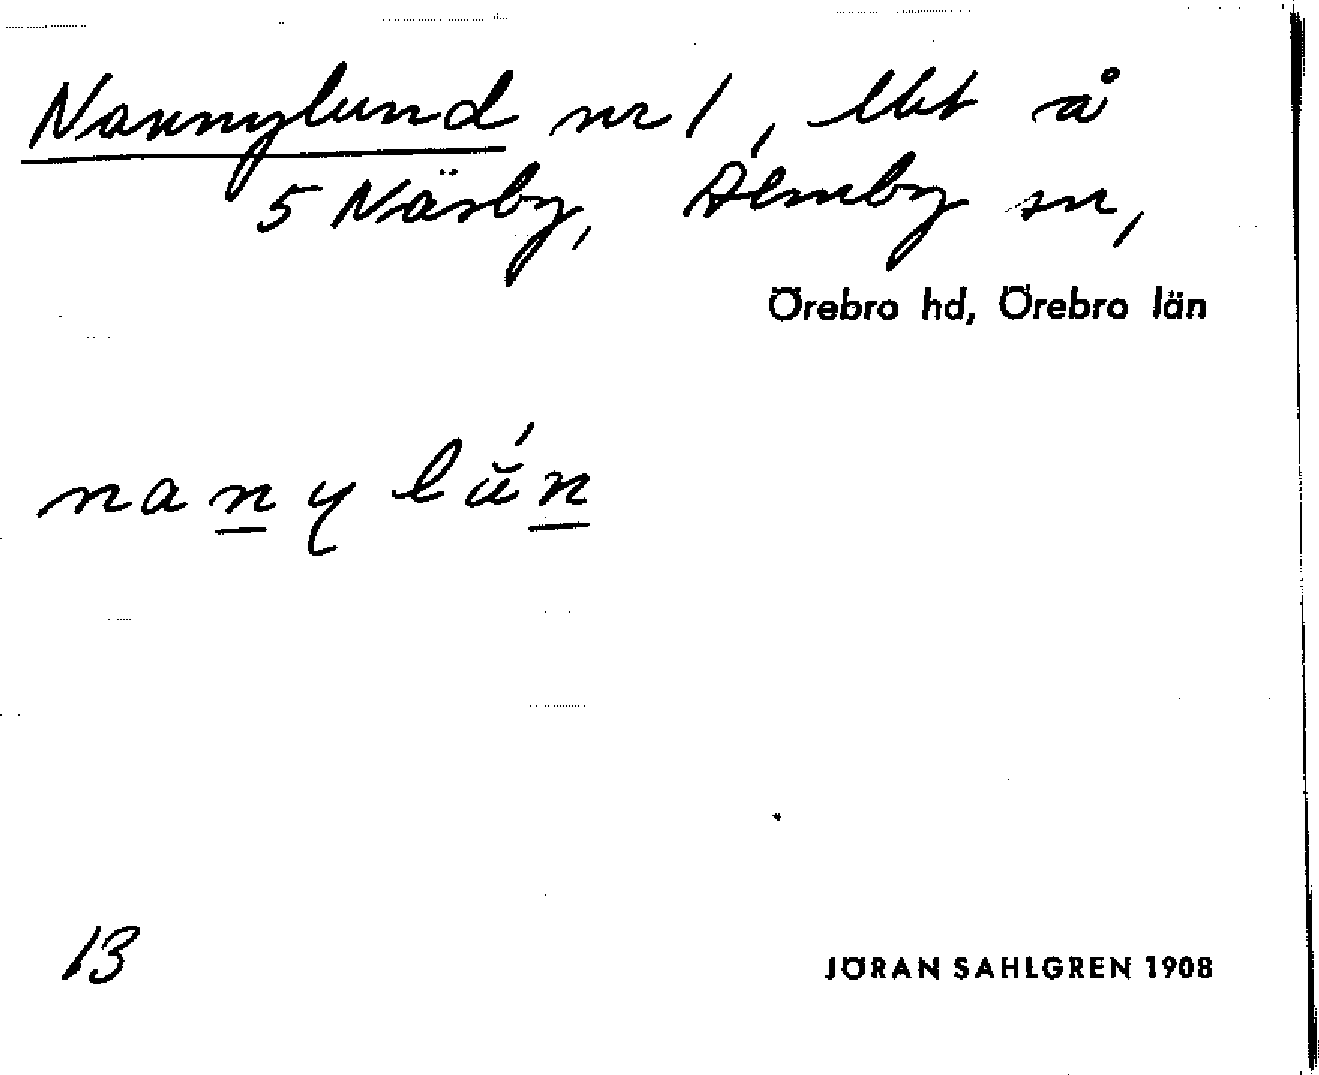 Nannylund nr 1, lht å
5 Näsby, Almby sn,
Örebro hd, Örebro län
nanylŭ́n
13
JÖRAN SAHLGREN 1908